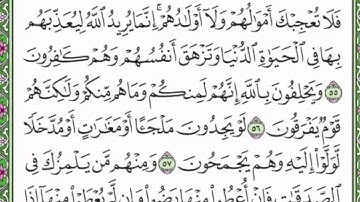 فَلَا تُعْجِبْكَ أَمْوَٰلُهُمْ وَلَآ أَوْلَـٰدُهُمْ ۚ إِنَّمَا يُرِيدُ ٱللَّهُ لِيُعَذِّبَهُم
بِهَا فِى ٱلْحَيَوٰةِ ٱلدُّنْيَا وَتَزْهَقَ أَنفُسُهُمْ وَهُمْ كَـٰفِرُونَ
٥٥ وَيَحْلِفُونَ بِٱللَّهِ إِنَّهُمْ لَمِنكُمْ وَمَا هُم مِّنكُمْ وَلَـٰكِنَّهُمْ
قَوْمٌ يَفْرَقُونَ ٥٦ لَوْ يَجِدُونَ مَلْجَـًٔا أَوْ مَغَـٰرَٰتٍ أَوْ مُدَّخَلًا
لَّوَلَّوْا۟ إِلَيْهِ وَهُمْ يَجْمَحُونَ ٥٧ وَمِنْهُم مَّن يَلْمِزُكَ فِى
ٱلصَّدَقَـٰتِ فَإِنْ أُعْطُوا۟ مِنْهَا رَضُوا۟ وَإِن لَّمْ يُعْطَوْا۟ مِنْهَآ إِذَا